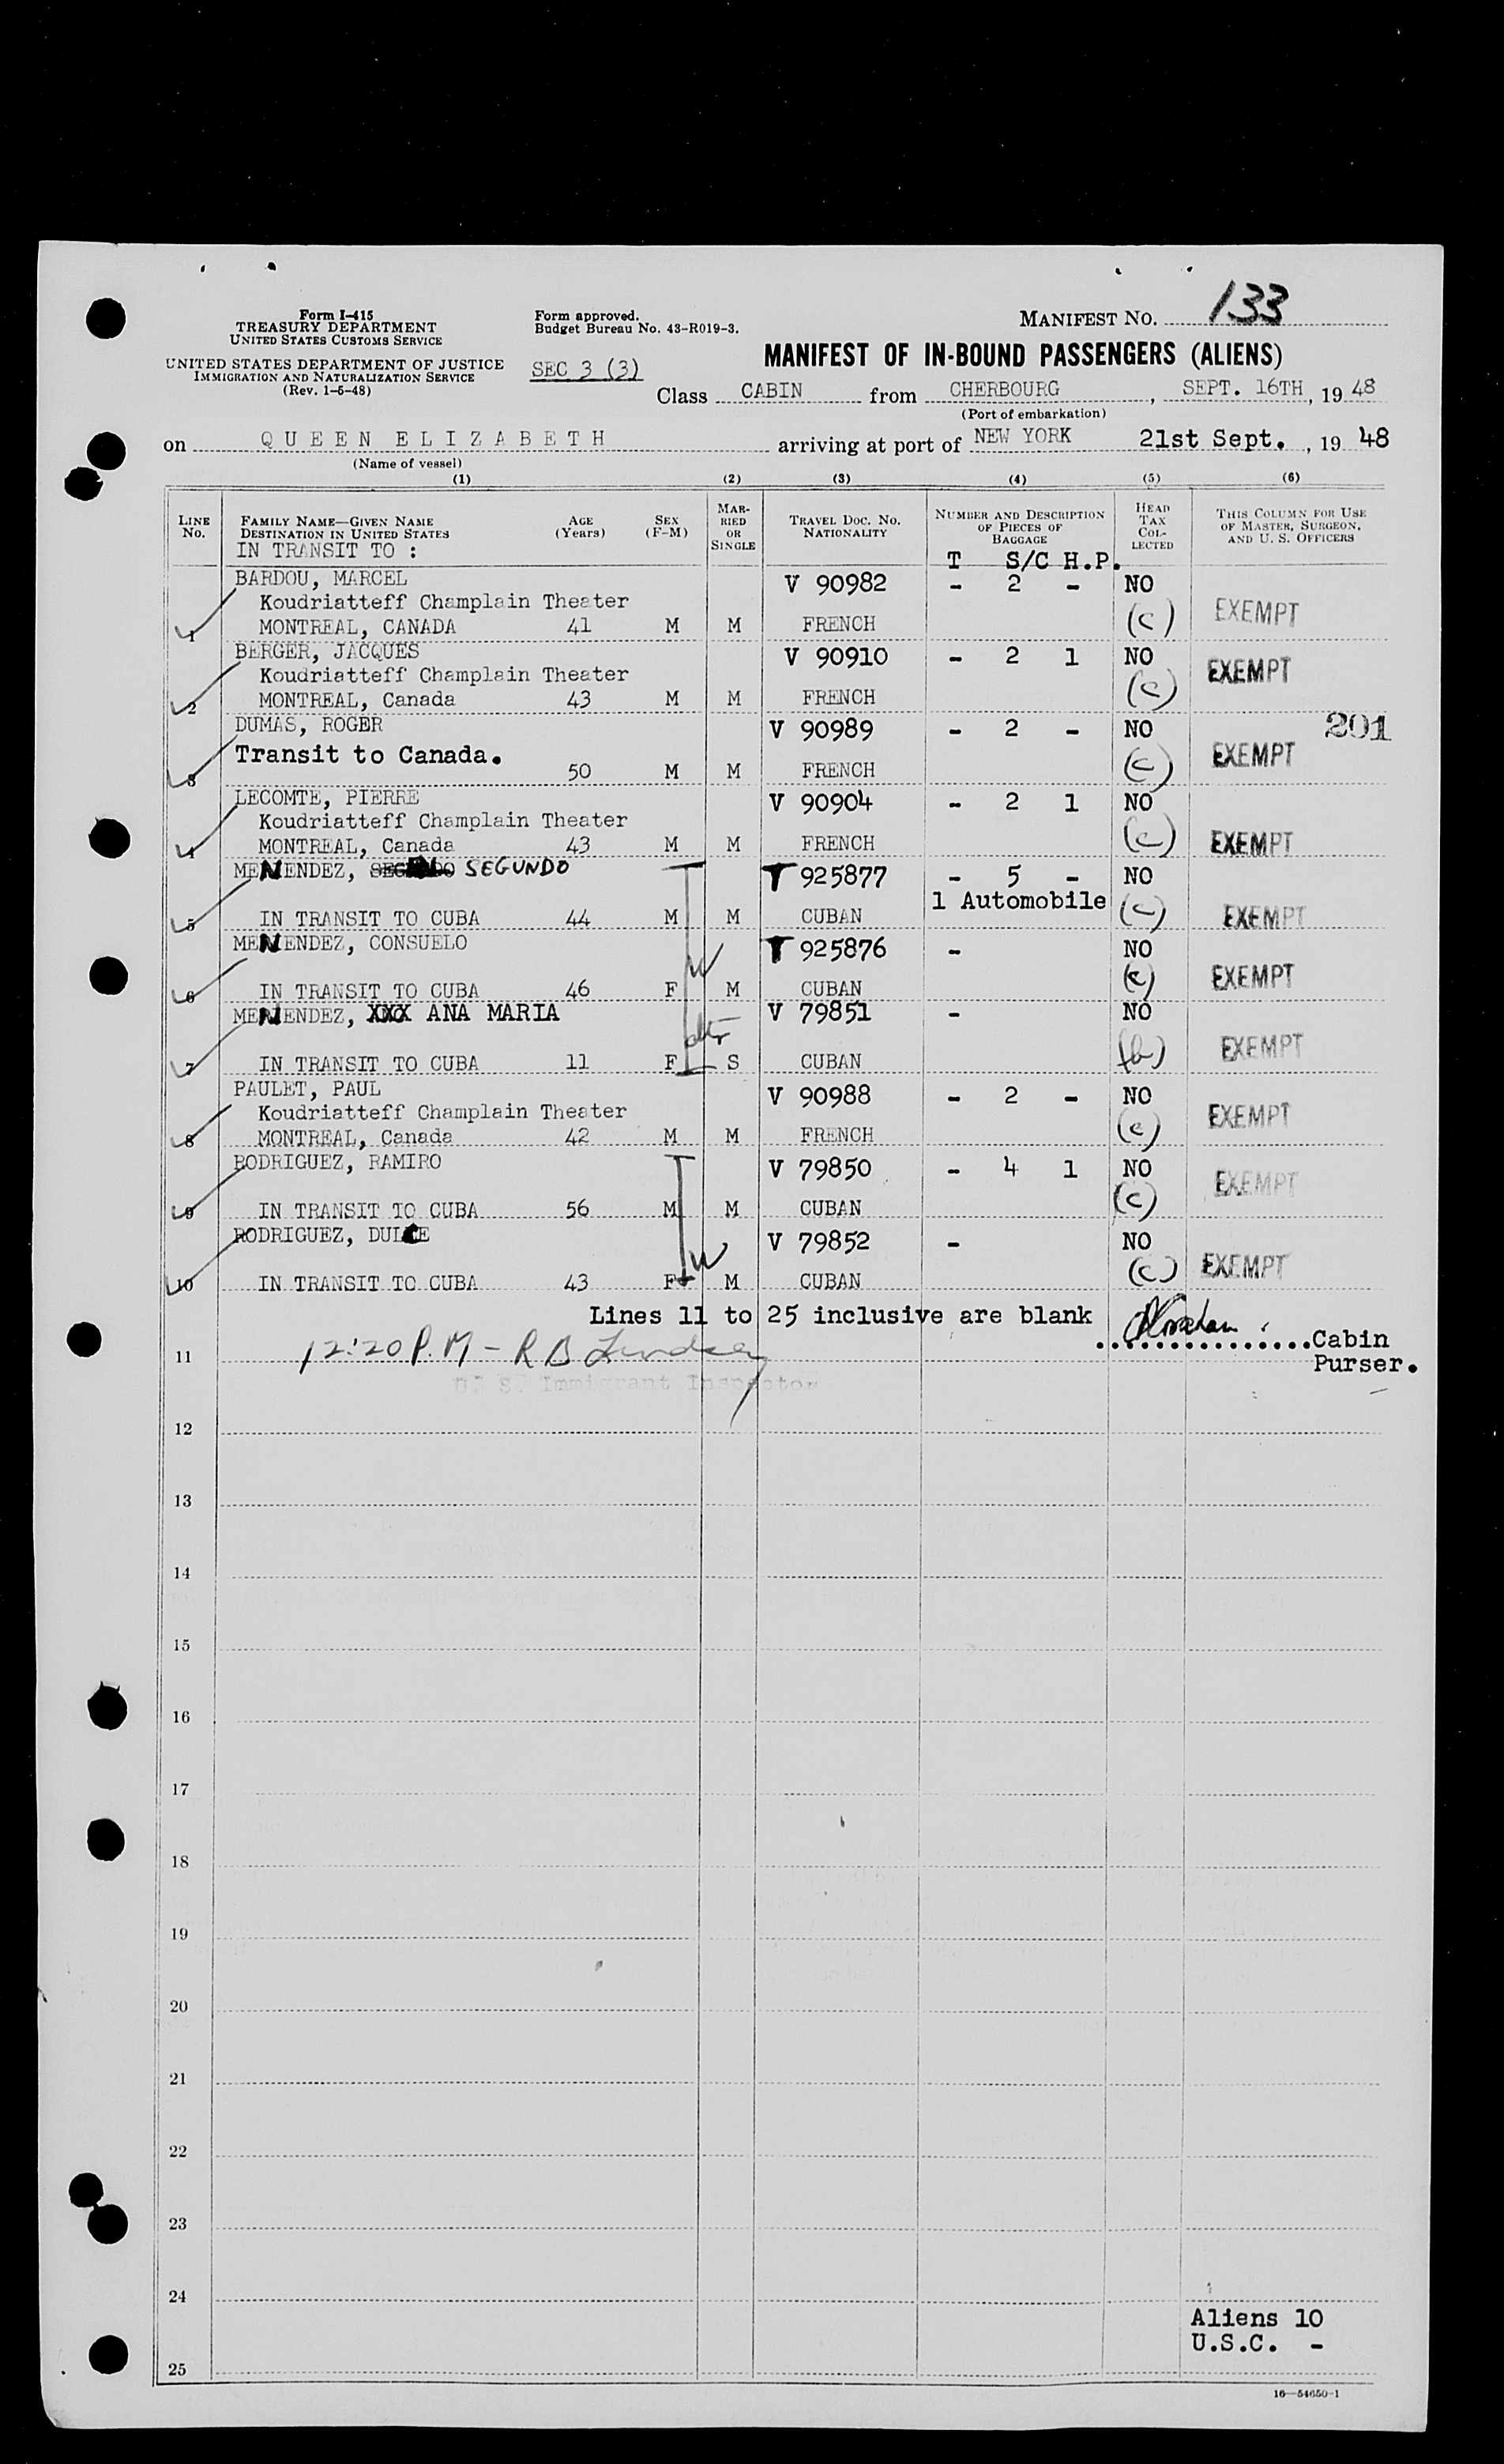 Form I-415
TREASURY DEPARTMENT
UNITED STATES CUSTOMS SERVICE
UNITED STATES DEPARTMENT OF JUSTICE
IMMIGRATION AND NATURALIZATION SERVICE
(Rev. 1-5-48)
Form approved.
Budget Bureau No. 43-R019-3.
SEC 3 (3)
MANIFEST NO. 133
MANIFEST OF IN-BOUND PASSENGERS (ALIENS)
Class CABIN from CHERBOURG, SEPT. 16TH, 19 48
(Port of embarkation)
on QUEEN ELIZABETH arriving at port of NEW YORK 21st Sept., 19 48
(Name of vessel)
(1) (2) (3) (4) (5) (6)
LINE No.
FAMILY NAME—GIVEN NAME
DESTINATION IN UNITED STATES
IN TRANSIT TO :
AGE (Years)
SEX (F-M)
MARRIED OR SINGLE
TRAVEL DOC. NO.
NATIONALITY
NUMBER AND DESCRIPTION OF PIECES OF BAGGAGE
T S/C H.P.
HEAD TAX COLLECTED
THIS COLUMN FOR USE OF MASTER, SURGEON, AND U. S. OFFICERS
BARDOU, MARCEL V 90982 - 2 - NO
Koudriatteff Champlain Theater
1 MONTREAL, CANADA 41 M M FRENCH (c) EXEMPT
BERGER, JACQUES V 90910 - 2 1 NO
Koudriatteff Champlain Theater
2 MONTREAL, Canada 43 M M FRENCH (c) EXEMPT
DUMAS, ROGER V 90989 - 2 - NO 201
Transit to Canada.
3 50 M M FRENCH (c) EXEMPT
LECOMTE, PIERRE V 90904 - 2 1 NO
Koudriatteff Champlain Theater
4 MONTREAL, Canada 43 M M FRENCH (c) EXEMPT
MENENDEZ, SEGUNDO T 925877 - 5 - NO
1 Automobile
5 IN TRANSIT TO CUBA 44 M M CUBAN (c) EXEMPT
MENENDEZ, CONSUELO T 925876 - NO
W
6 IN TRANSIT TO CUBA 46 F M CUBAN (c) EXEMPT
MENENDEZ, XXX ANA MARIA V 79851 - NO
dtr
7 IN TRANSIT TO CUBA 11 F S CUBAN (b) EXEMPT
PAULET, PAUL V 90988 - 2 - NO
Koudriatteff Champlain Theater
8 MONTREAL, Canada 42 M M FRENCH (c) EXEMPT
RODRIGUEZ, RAMIRO V 79850 - 4 1 NO
9 IN TRANSIT TO CUBA 56 M M CUBAN (c) EXEMPT
RODRIGUEZ, DULCE V 79852 - NO
W
10 IN TRANSIT TO CUBA 43 F M CUBAN (c) EXEMPT
Lines 11 to 25 inclusive are blank
Cabin
Purser.
11 12:20 P.M - R B Lindsey
U. S. Immigrant Inspector
12
13
14
15
16
17
18
19
20
21
22
23
24
Aliens 10
U.S.C. -
25
16—54650-1